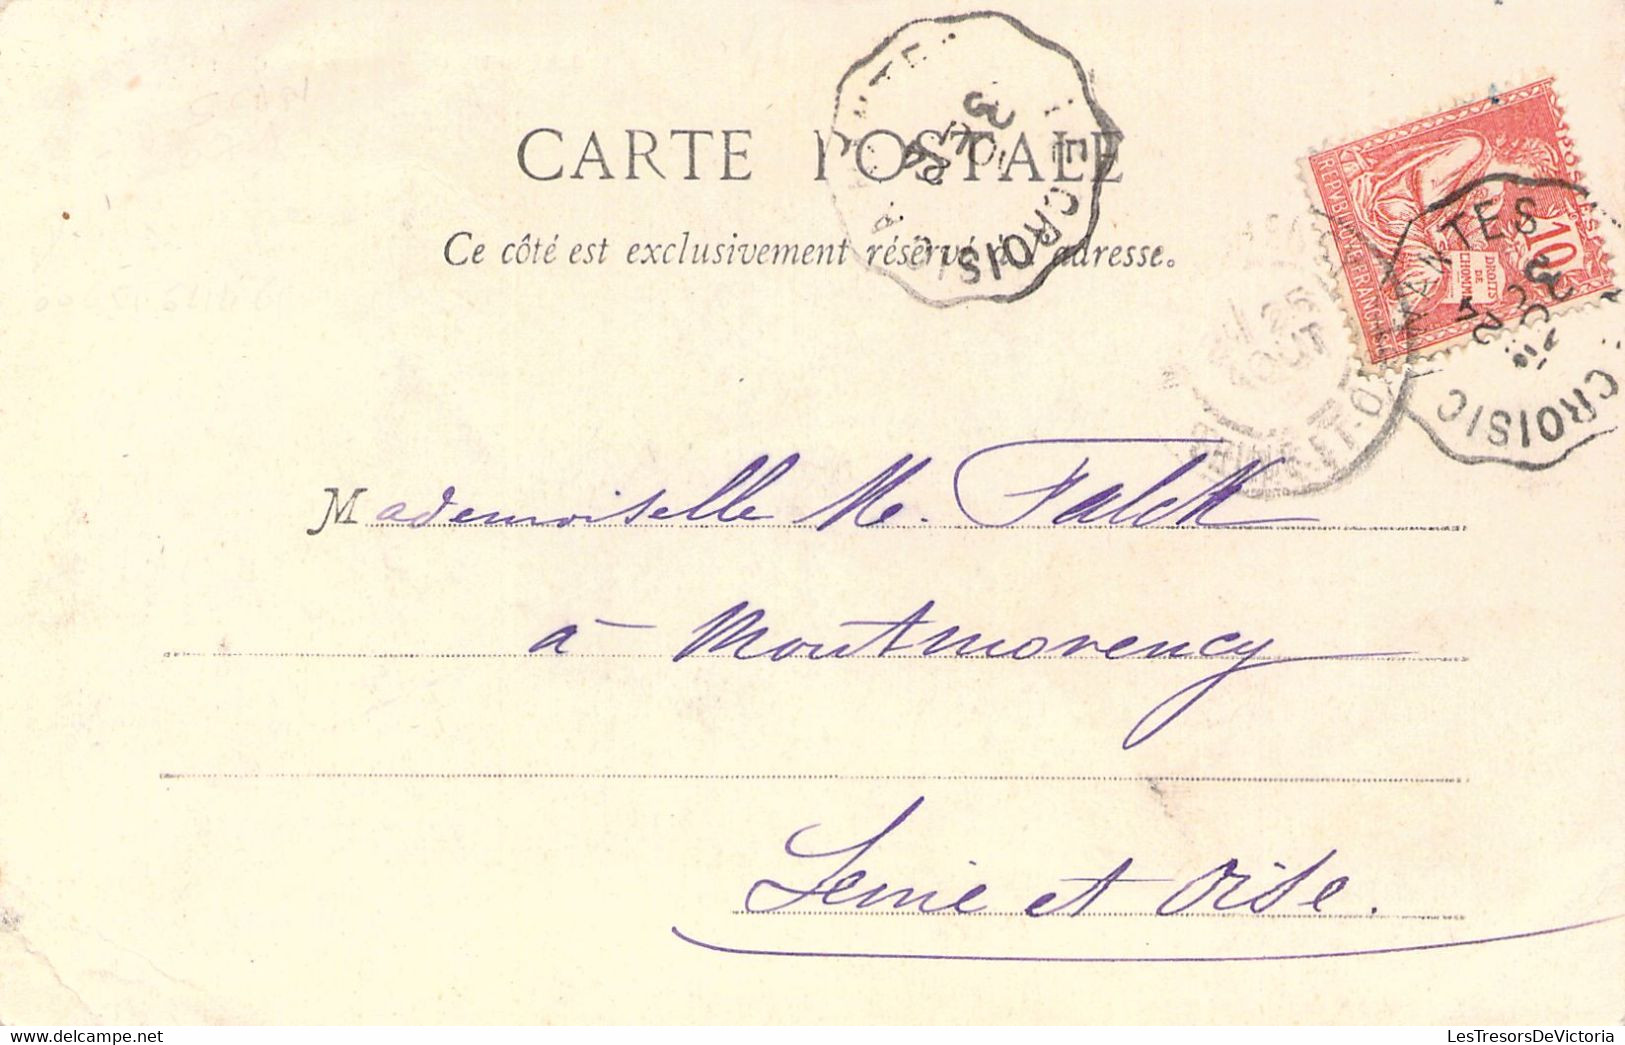 CARTE POSTALE
Ce côté est exclusivement réservé à l'adresse.
LE CROISIC
REPUBLIQUE FRANÇAISE
POSTES
10
DROITS
DE
L'HOMME
NANTES
CROISIC
24
25
AOUT
SEINE-ET-OISE
Mademoiselle M. Falck
à Montmorency
Seine et Oise.
LesTresorsDeVictoria